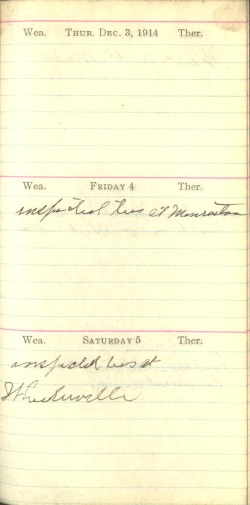 Wea. THUR. DEC. 3, 1914 Ther.
Wea. FRIDAY 4 Ther.
inspected at
Wea. SATURDAY 5 Ther.
inspected at